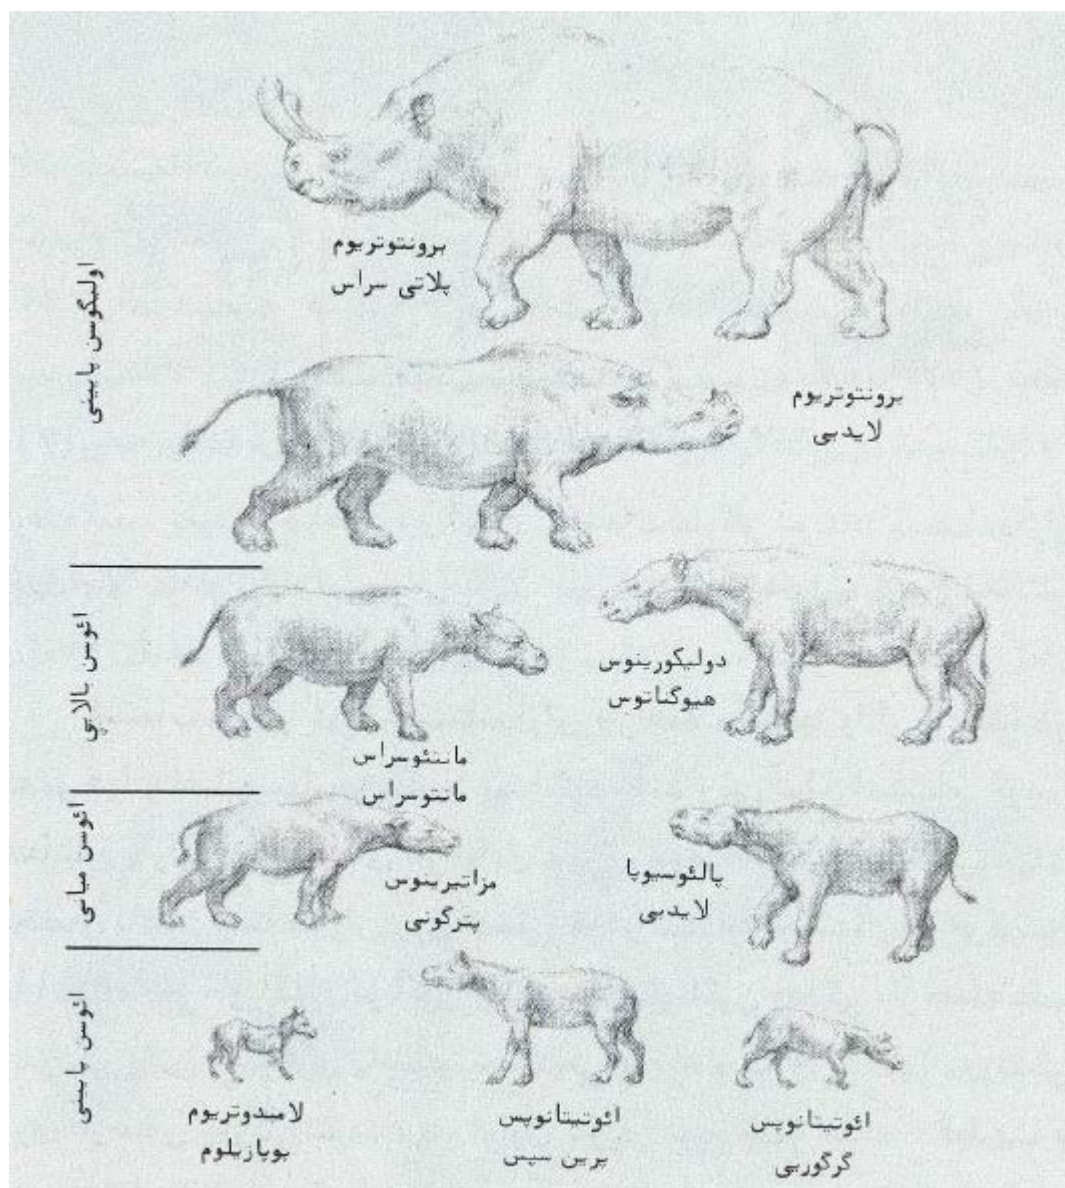 برونتوتریوم
پلاتی سراس
اولیگوسن پایینی
برونتوتریوم
لایدیی
ائوسن بالایی
دولیکورینوس
هیوگناتوس
مانتئوسراس
مانتوسراس
ائوسن میانی
مزاتیرینوس
پترگونی
پالئوسیوپا
لایدیی
ائوسن پایینی
لامبدوتریوم
پوپازیلوم
ائوتیتانوپس
پرین سپس
ائوتیتانوپس
گرگوریی